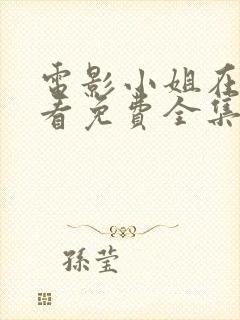 電影小姐在
看免費全集
孫莹